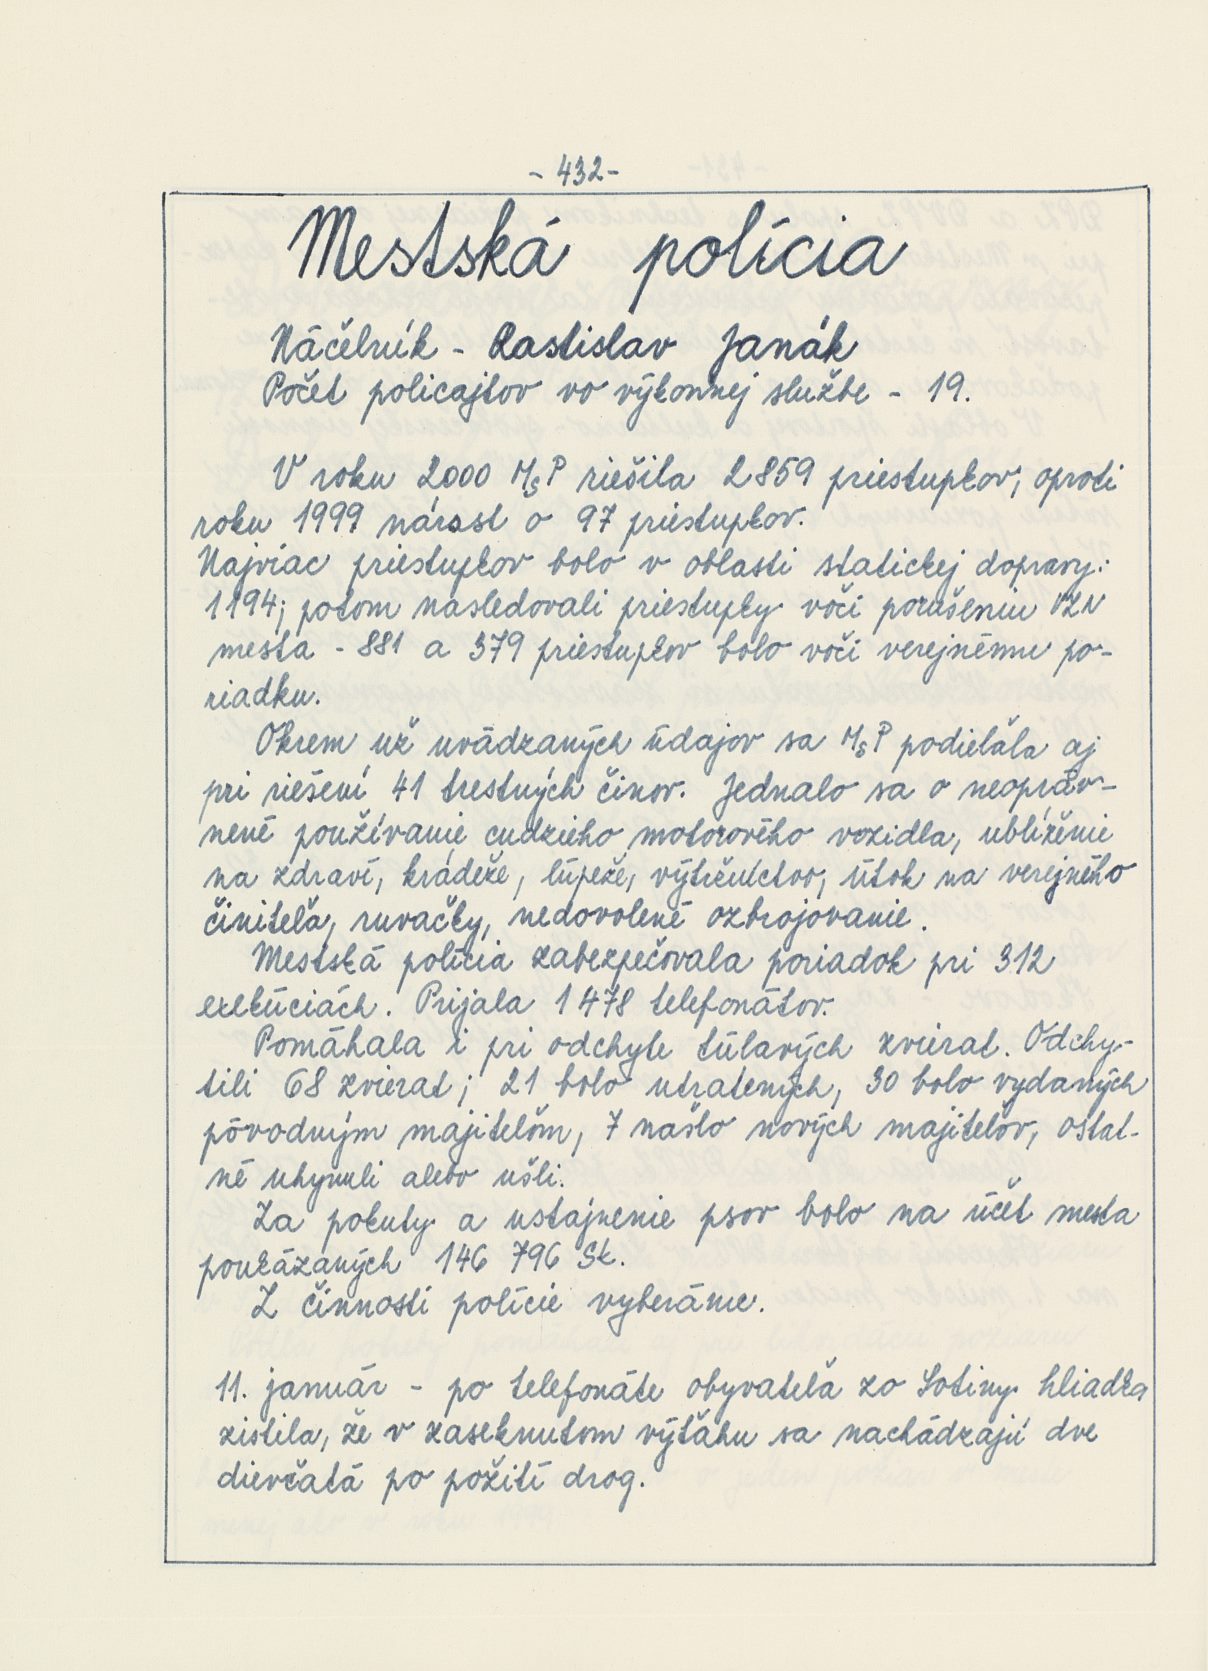 - 432 -
Mestská polícia
Náčelník - Rastislav Janák
Počet policajtov vo výkonnej službe - 19.
V roku 2000 MsP riešila 2859 priestupkov, oproti
roku 1999 nárast o 97 priestupkov.
Najviac priestupkov bolo v oblasti statickej dopravy:
1194; potom nasledovali priestupky voči porušeniu VZN
mesta - 881 a 379 priestupkov bolo voči verejnému po-
riadku.
Okrem už uvádzaných údajov sa MsP podieľala aj
pri riešení 41 trestných činov. Jednalo sa o neopráv-
nené používanie cudzieho motorového vozidla, ublíženie
na zdraví, krádeže, lúpeže, výtržníctvo, útok na verejného
činiteľa, ruvačky, nedovolené ozbrojovanie.
Mestská polícia zabezpečovala poriadok pri 312
exekúciách. Prijala 1478 telefonátov.
Pomáhala i pri odchyte túlavých zvierat. Odchy-
tili 68 zvierat; 21 bolo utratených, 30 bolo vydaných
pôvodným majiteľom, 7 našlo nových majiteľov, ostat-
né uhynuli alebo ušli.
Za pokuty a ustajnenie psov bolo na účet mesta
poukázaných 146 796 Sk.
Z činnosti polície vyberáme.
11. január - po telefonáte obyvateľa zo Sotiny hliadka
zistila, že v zaseknutom výťahu sa nachádzajú dve
dievčatá po požití drog.